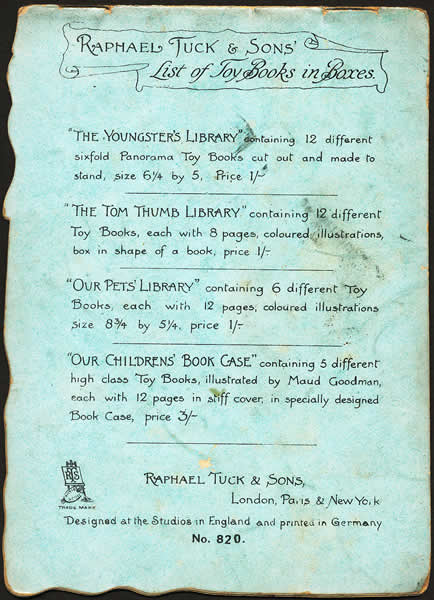 RAPHAEL TUCK & SONS'
List of Toy Books in Boxes.
"THE YOUNGSTER'S LIBRARY" containing 12 different
sixfold Panorama Toy Books cut out and made to
stand, size 6¼ by 5, Price 1/-
"THE TOM THUMB LIBRARY" containing 12 different
Toy Books, each with 8 pages, coloured illustrations,
box in shape of a book, price 1/-
"OUR PETS' LIBRARY" containing 6 different Toy
Books, each with 12 pages, coloured illustrations
size 8¾ by 5¼, price 1/-
"OUR CHILDRENS' BOOK CASE" containing 5 different
high class Toy Books, illustrated by Maud Goodman,
each with 12 pages in stiff cover, in specially designed
Book Case, price 3/-
RAPHAEL TUCK & SONS,
London, Paris & New York
TRADE MARK
Designed at the Studios in England and printed in Germany
No. 820.